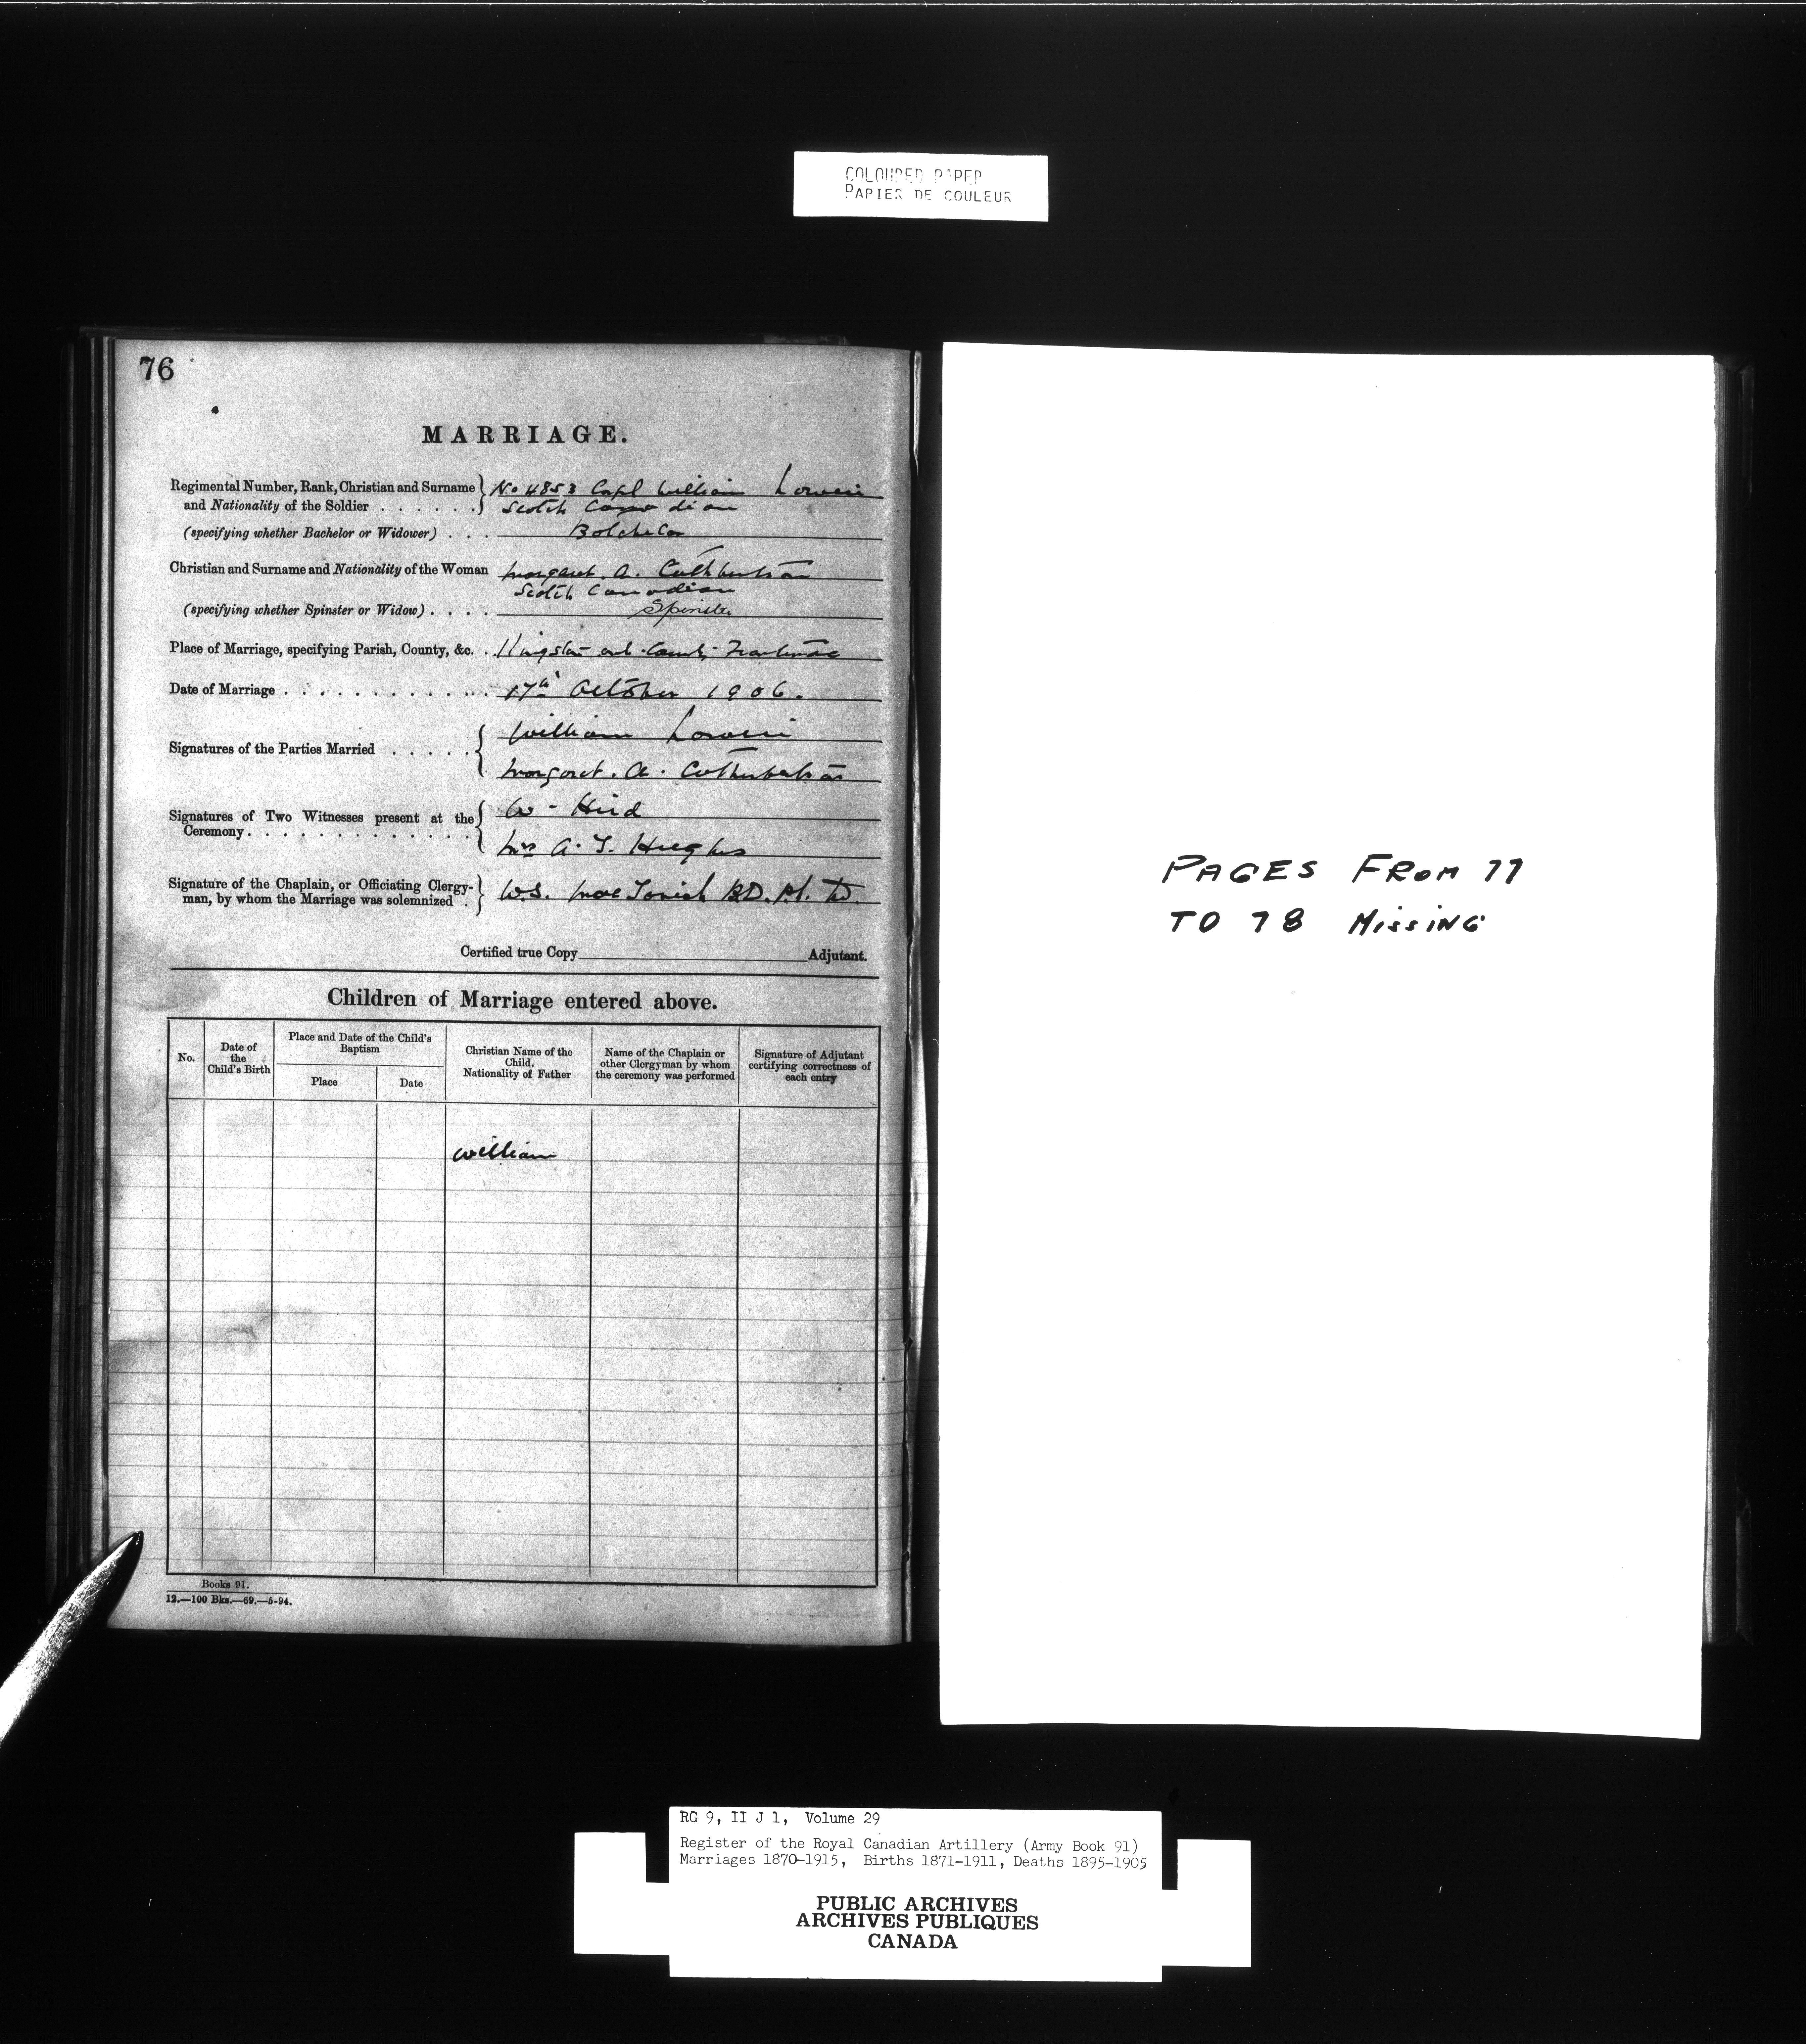 COLOURED PAPER
PAPIER DE COULEUR
76
MARRIAGE.
Regimental Number, Rank, Christian and Surname and Nationality of the Soldier . . . . . . No 4853 Corpl William
Scotch Canadian
(specifying whether Bachelor or Widower) . . . Batchelor
Christian and Surname and Nationality of the Woman Margaret. A. Cuthbertson
Scotch Canadian
(specifying whether Spinster or Widow) . . . . Spinster
Place of Marriage, specifying Parish, County, &c. . Kingston Ont. County Frontenac
Date of Marriage . . . . . . . . . . . . 17th October 1906.
Signatures of the Parties Married . . . . . William
Margaret. A. Cuthbertson
Signatures of Two Witnesses present at the Ceremony . . . . . . . . . . . . . W. Hird
Mrs A. T. Hughes
Signature of the Chaplain, or Officiating Clergy-
man, by whom the Marriage was solemnized . W.S. MacTavish B.D. Ph. D.
Certified true Copy Adjutant.
Children of Marriage entered above.
No.
Date of the Child's Birth
Place and Date of the Child's Baptism
Place
Date
Christian Name of the Child.
Nationality of Father
Name of the Chaplain or other Clergyman by whom the ceremony was performed
Signature of Adjutant certifying correctness of each entry
William
Books 91.
12.—100 Bks.—69.—5-94.
PAGES FROM 77
TO 78 MISSING
RG 9, II J 1, Volume 29
Register of the Royal Canadian Artillery (Army Book 91)
Marriages 1870-1915, Births 1871-1911, Deaths 1895-1905
PUBLIC ARCHIVES
ARCHIVES PUBLIQUES
CANADA